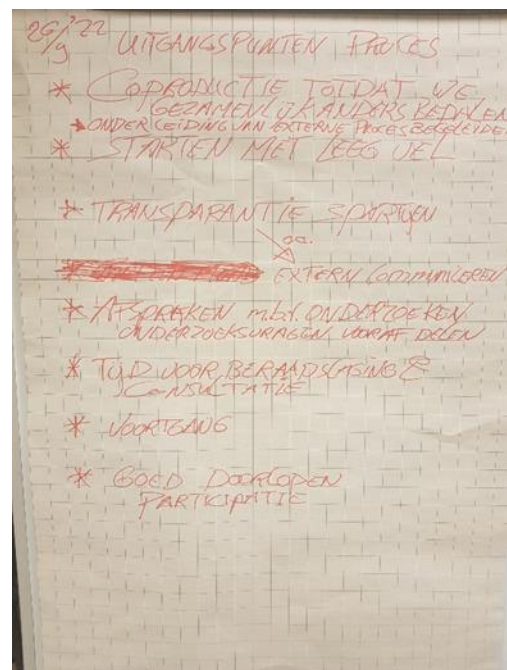 26/9 '22 UITGANGSPUNTEN PROCES
* COPRODUCTIE TOTDAT WE
GEZAMENLIJK ANDERS BEPALEN
→ ONDER LEIDING VAN EXTERNE PROCESBEGELEIDER
* STARTEN MET LEEG VEL
* TRANSPARANTIE 5 PARTIJEN
oa.
EXTERN COMMUNICEREN
* AFSPRAKEN m.b.t. ONDERZOEKEN
ONDERZOEKSVRAGEN VOORAF DELEN
* TIJD VOOR BERAADSLAGING &
CONSULTATIE
* VOORTGANG
* GOED DOORLOPEN
PARTICIPATIE